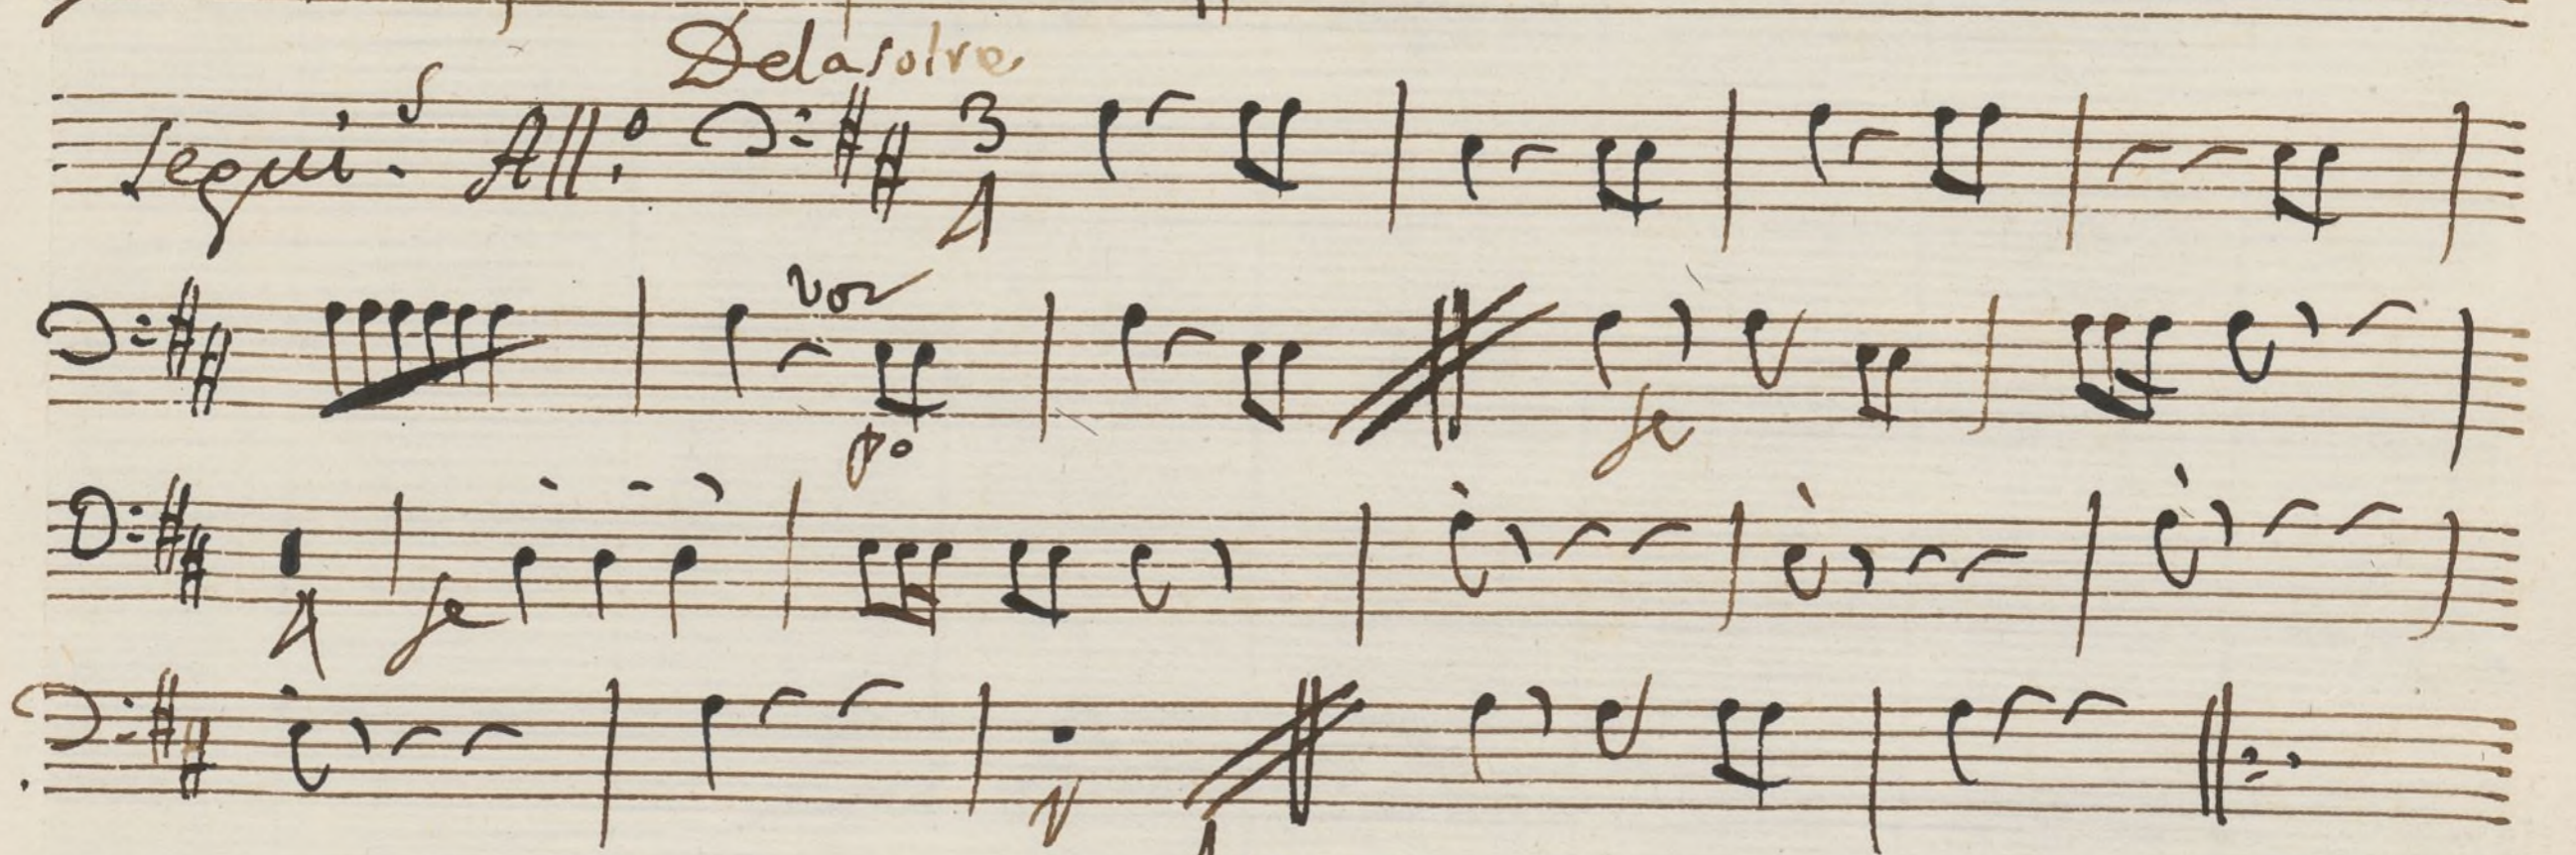 Delasolre
Segui.s All:o 3 4
voz
po
fe
4 fe